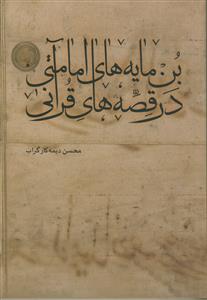 بُن‌مایه‌های امامتی
در قصّه‌های قرآنی
محسن دیمه‌کارگراب